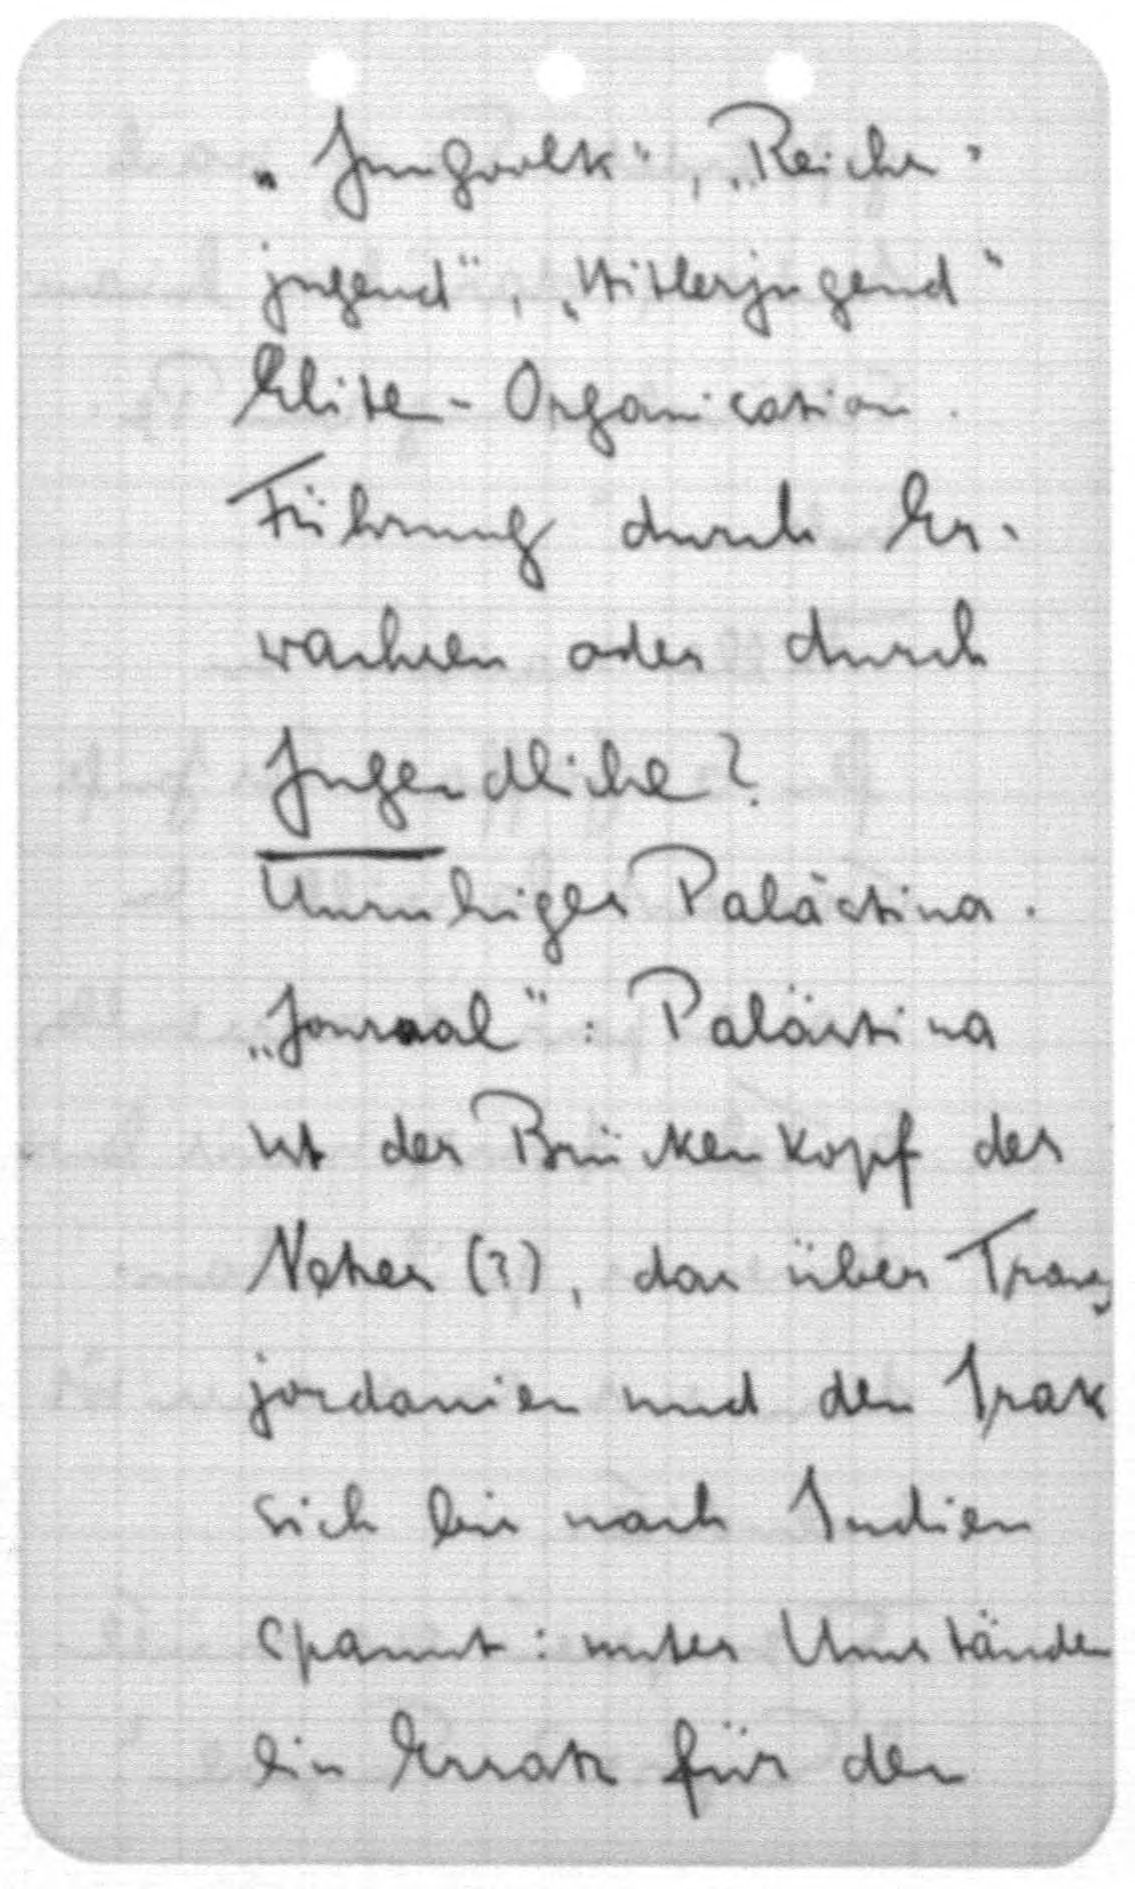 „Jungvolk", „Reichs-
jugend", „Hitlerjugend"
Elite-Organisation.
Führung durch Er-
wachsen oder durch
Jugendliche?
Unruhiges Palästina.
„Journal": Palästina
ist der Brückenkopf des
Netzes (?), das über Trans-
jordanien und den Irak
sich bis nach Indien
spannt: unter Umständen
ein Ersatz für den